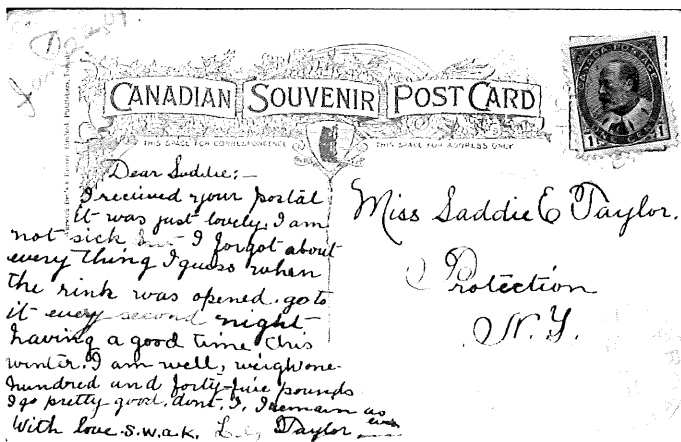 CANADIAN SOUVENIR POST CARD
THIS SPACE FOR CORRESPONDENCE
THIS SPACE FOR ADDRESS ONLY
CANADA POSTAGE
1 1
Dear Saddie:—
I received your postal
it was just lovely. I am
not sick but I forgot about
every thing I guess when
the rink was opened. go to
it every second night
having a good time this
winter. I am well, weigh one
hundred and forty-five pounds
I go pretty good, dont I. I remain as ever
With love s.w.a.k. Taylor
Miss Saddie E Taylor.
Protection
N.Y.